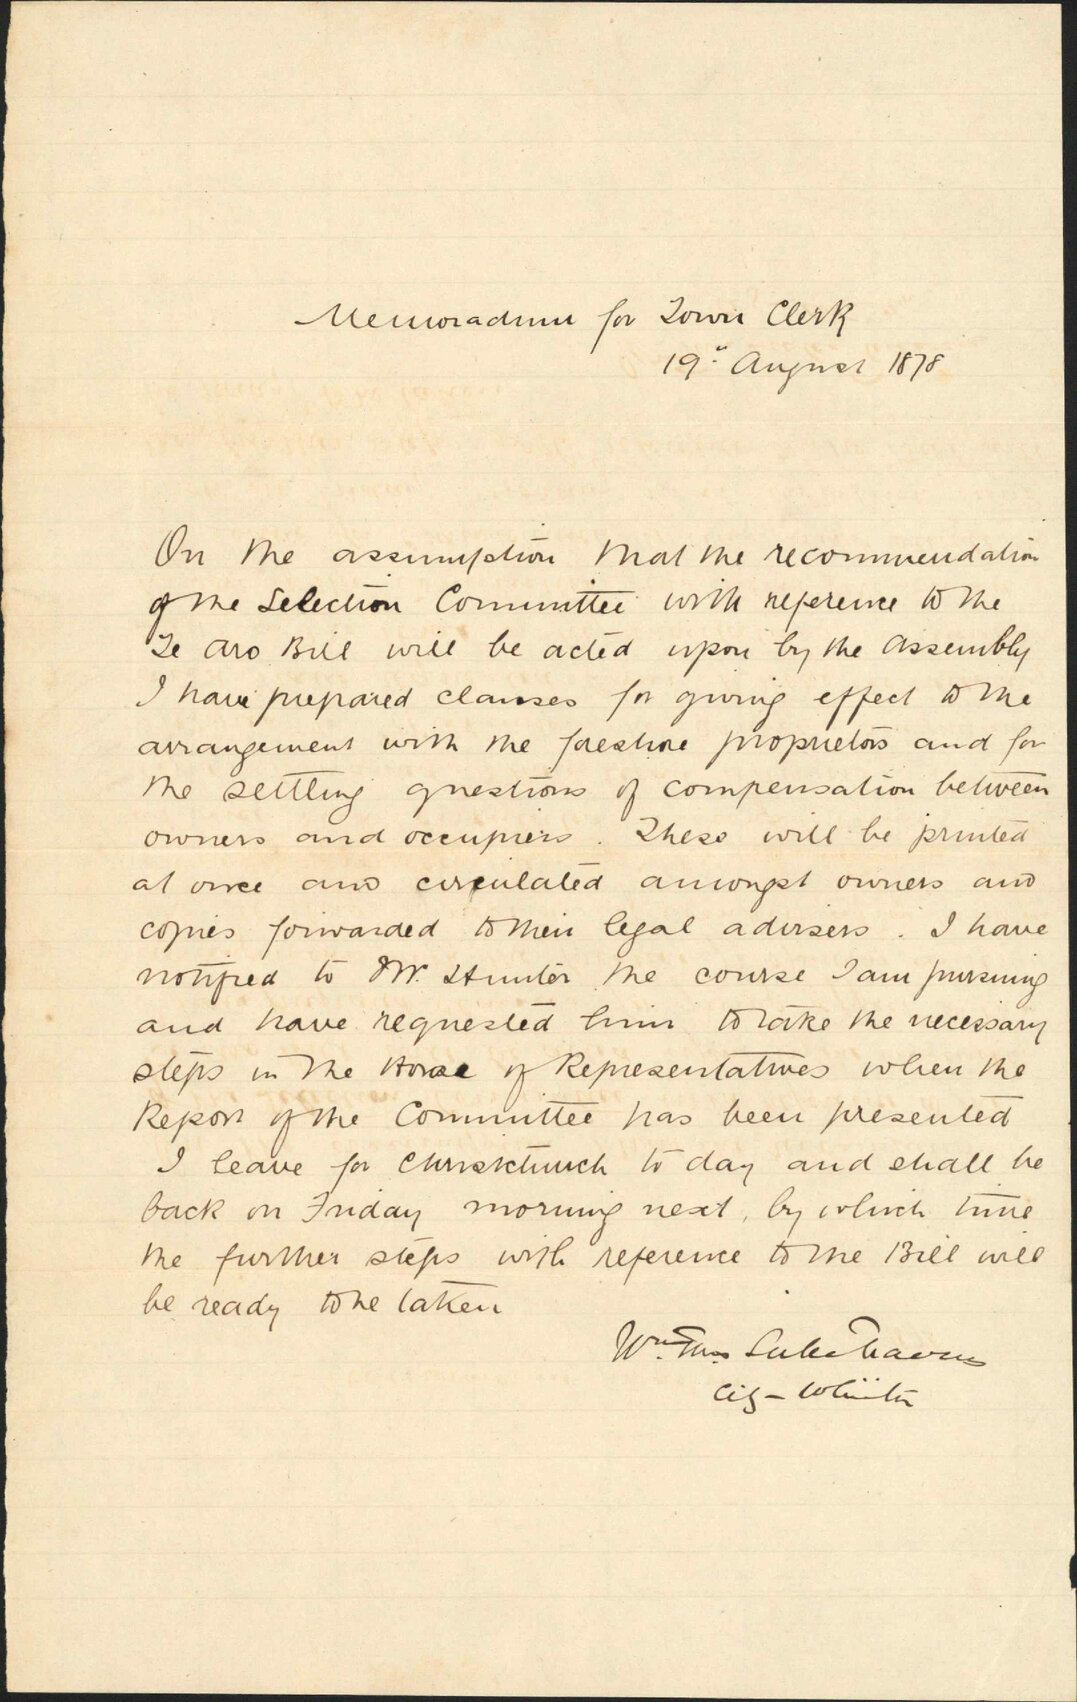 Memoradum for Town Clerk
19th August 1878
On the assumption that the recommendation
of the Selection Committee with reference to the
Te Aro Bill will be acted upon by the Assembly
I have prepared clauses for giving effect to the
arrangement with the foreshore proprietors and for
the settling questions of compensation between
owners and occupiers. These will be printed
at once and circulated amongst owners and
copies forwarded to their legal advisers. I have
notified to Mr. Hunter the course I am pursuing
and have requested him to take the necessary
steps in the House of Representatives when the
Report of the Committee has been presented
I leave for Christchurch to day and shall be
back on Friday morning next, by which time
the further steps with reference to the Bill will
be ready to be taken
Wm. Thos.
City